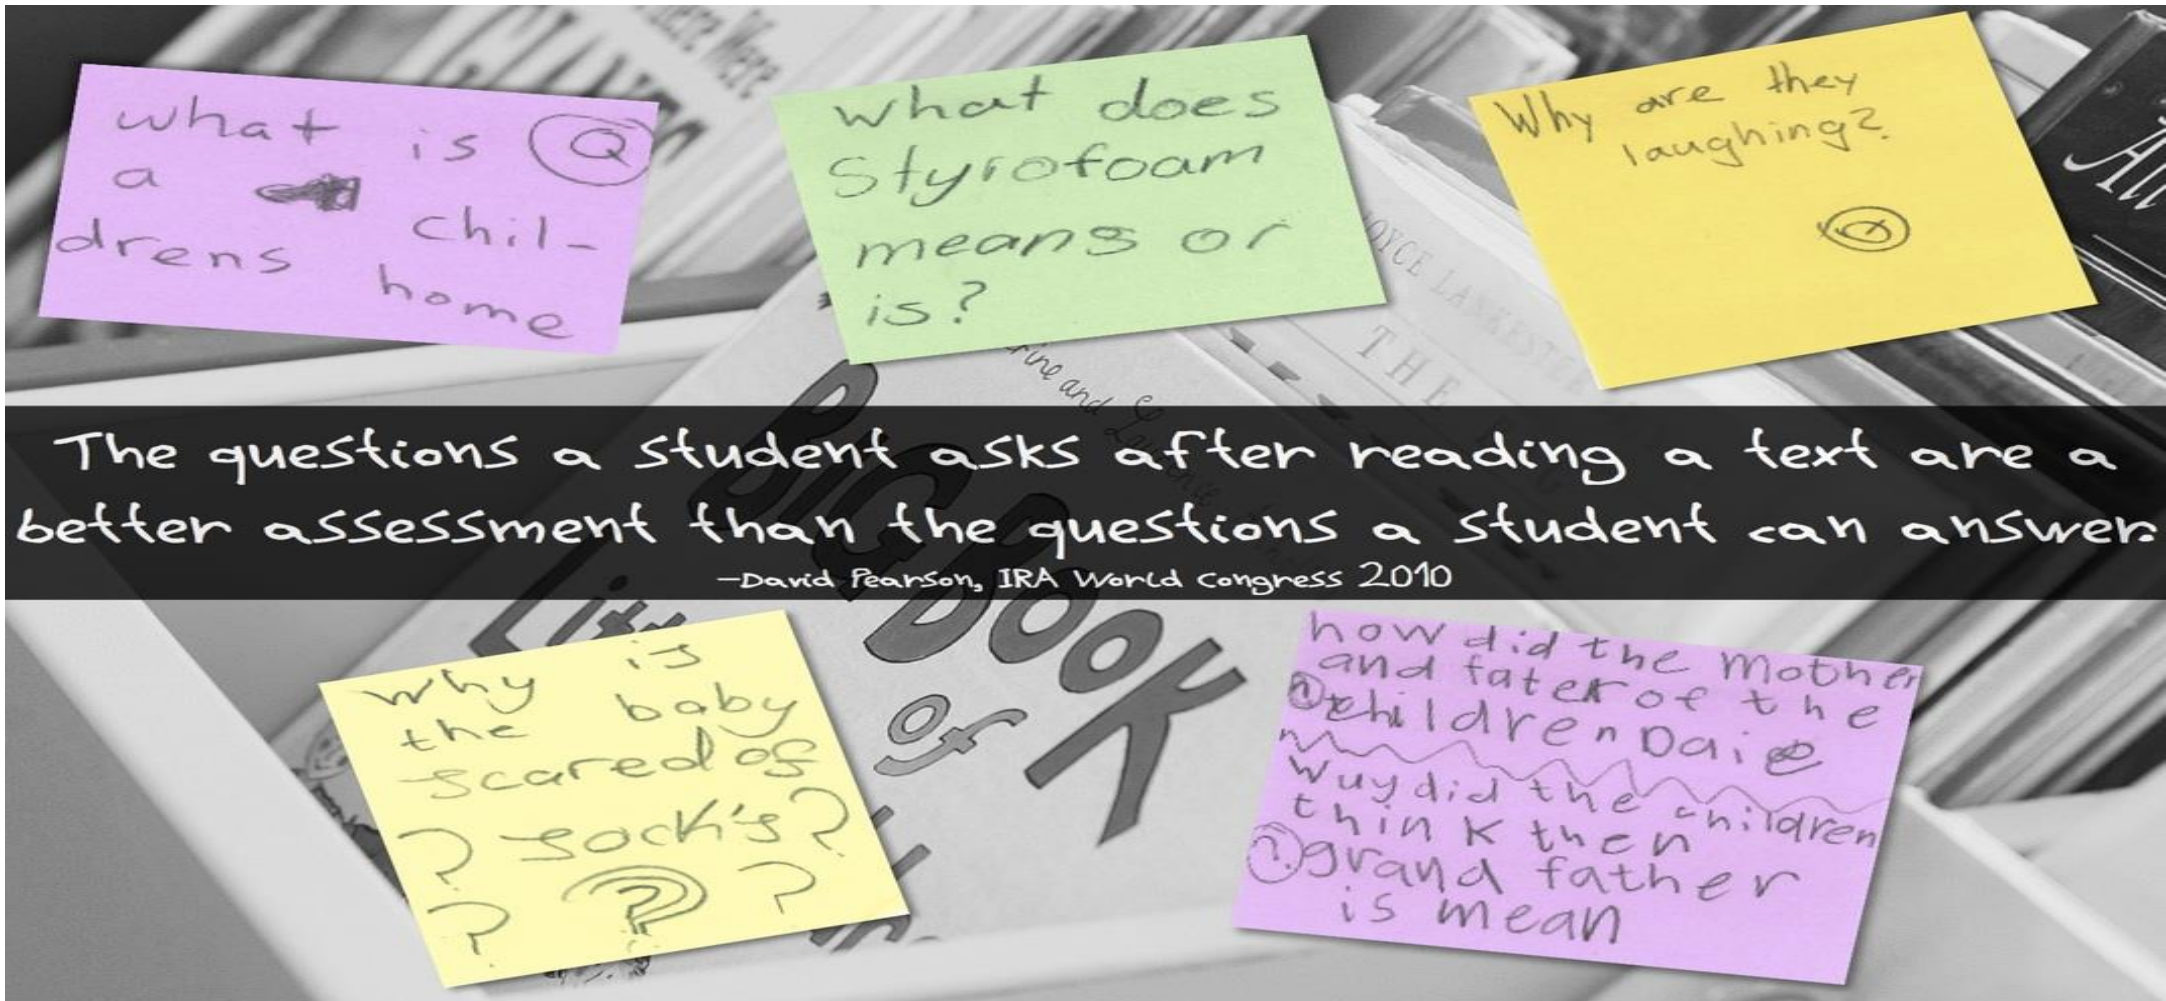 what is Q
a chil-
drens home
what does
Styrofoam
means or
is?
Why are they
laughing?
Q
The questions a student asks after reading a text are a
better assessment than the questions a student can answer.
–David Pearson, IRA World Congress 2010
why is
the baby
scared of
? sock's?
? ? ?
how did the Mother
and fater of the
? children Daie
Wuy did the children
think then
? grand father
is mean
BIG BOOK
of
Litt
THE